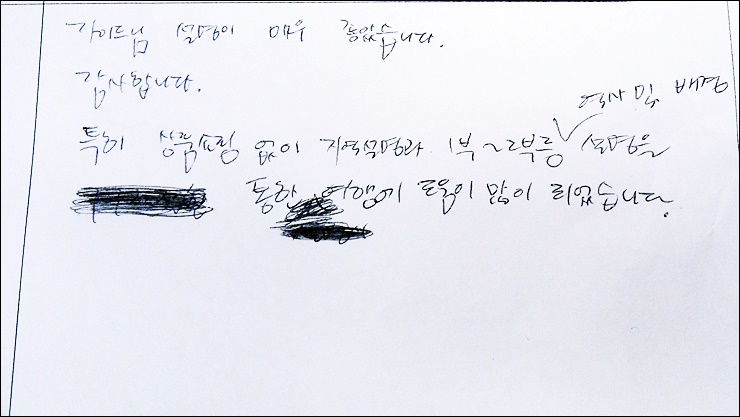 가이드님 설명이 매우 좋았습니다.
감사합니다.
역사 및 배경
특히 상품쇼핑 없이 지역설명과 1부~2부등 설명을
통한 여행에 도움이 많이 되었습니다.